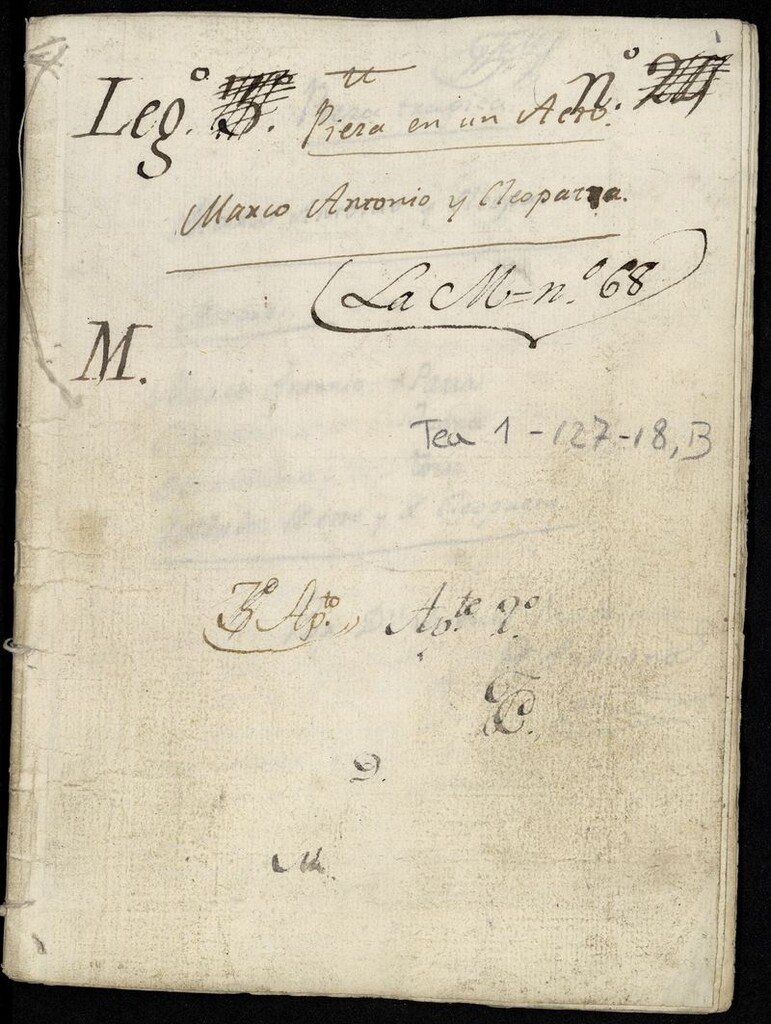 Leg.º 3. tt n.º 20
Pieza en un Acto.
Marco Antonio y Cleopatra.
La M=n.º 68
M.
Tea 1-127-18, B
3º Ap.to Ap.te 2.º
C.
9.
M